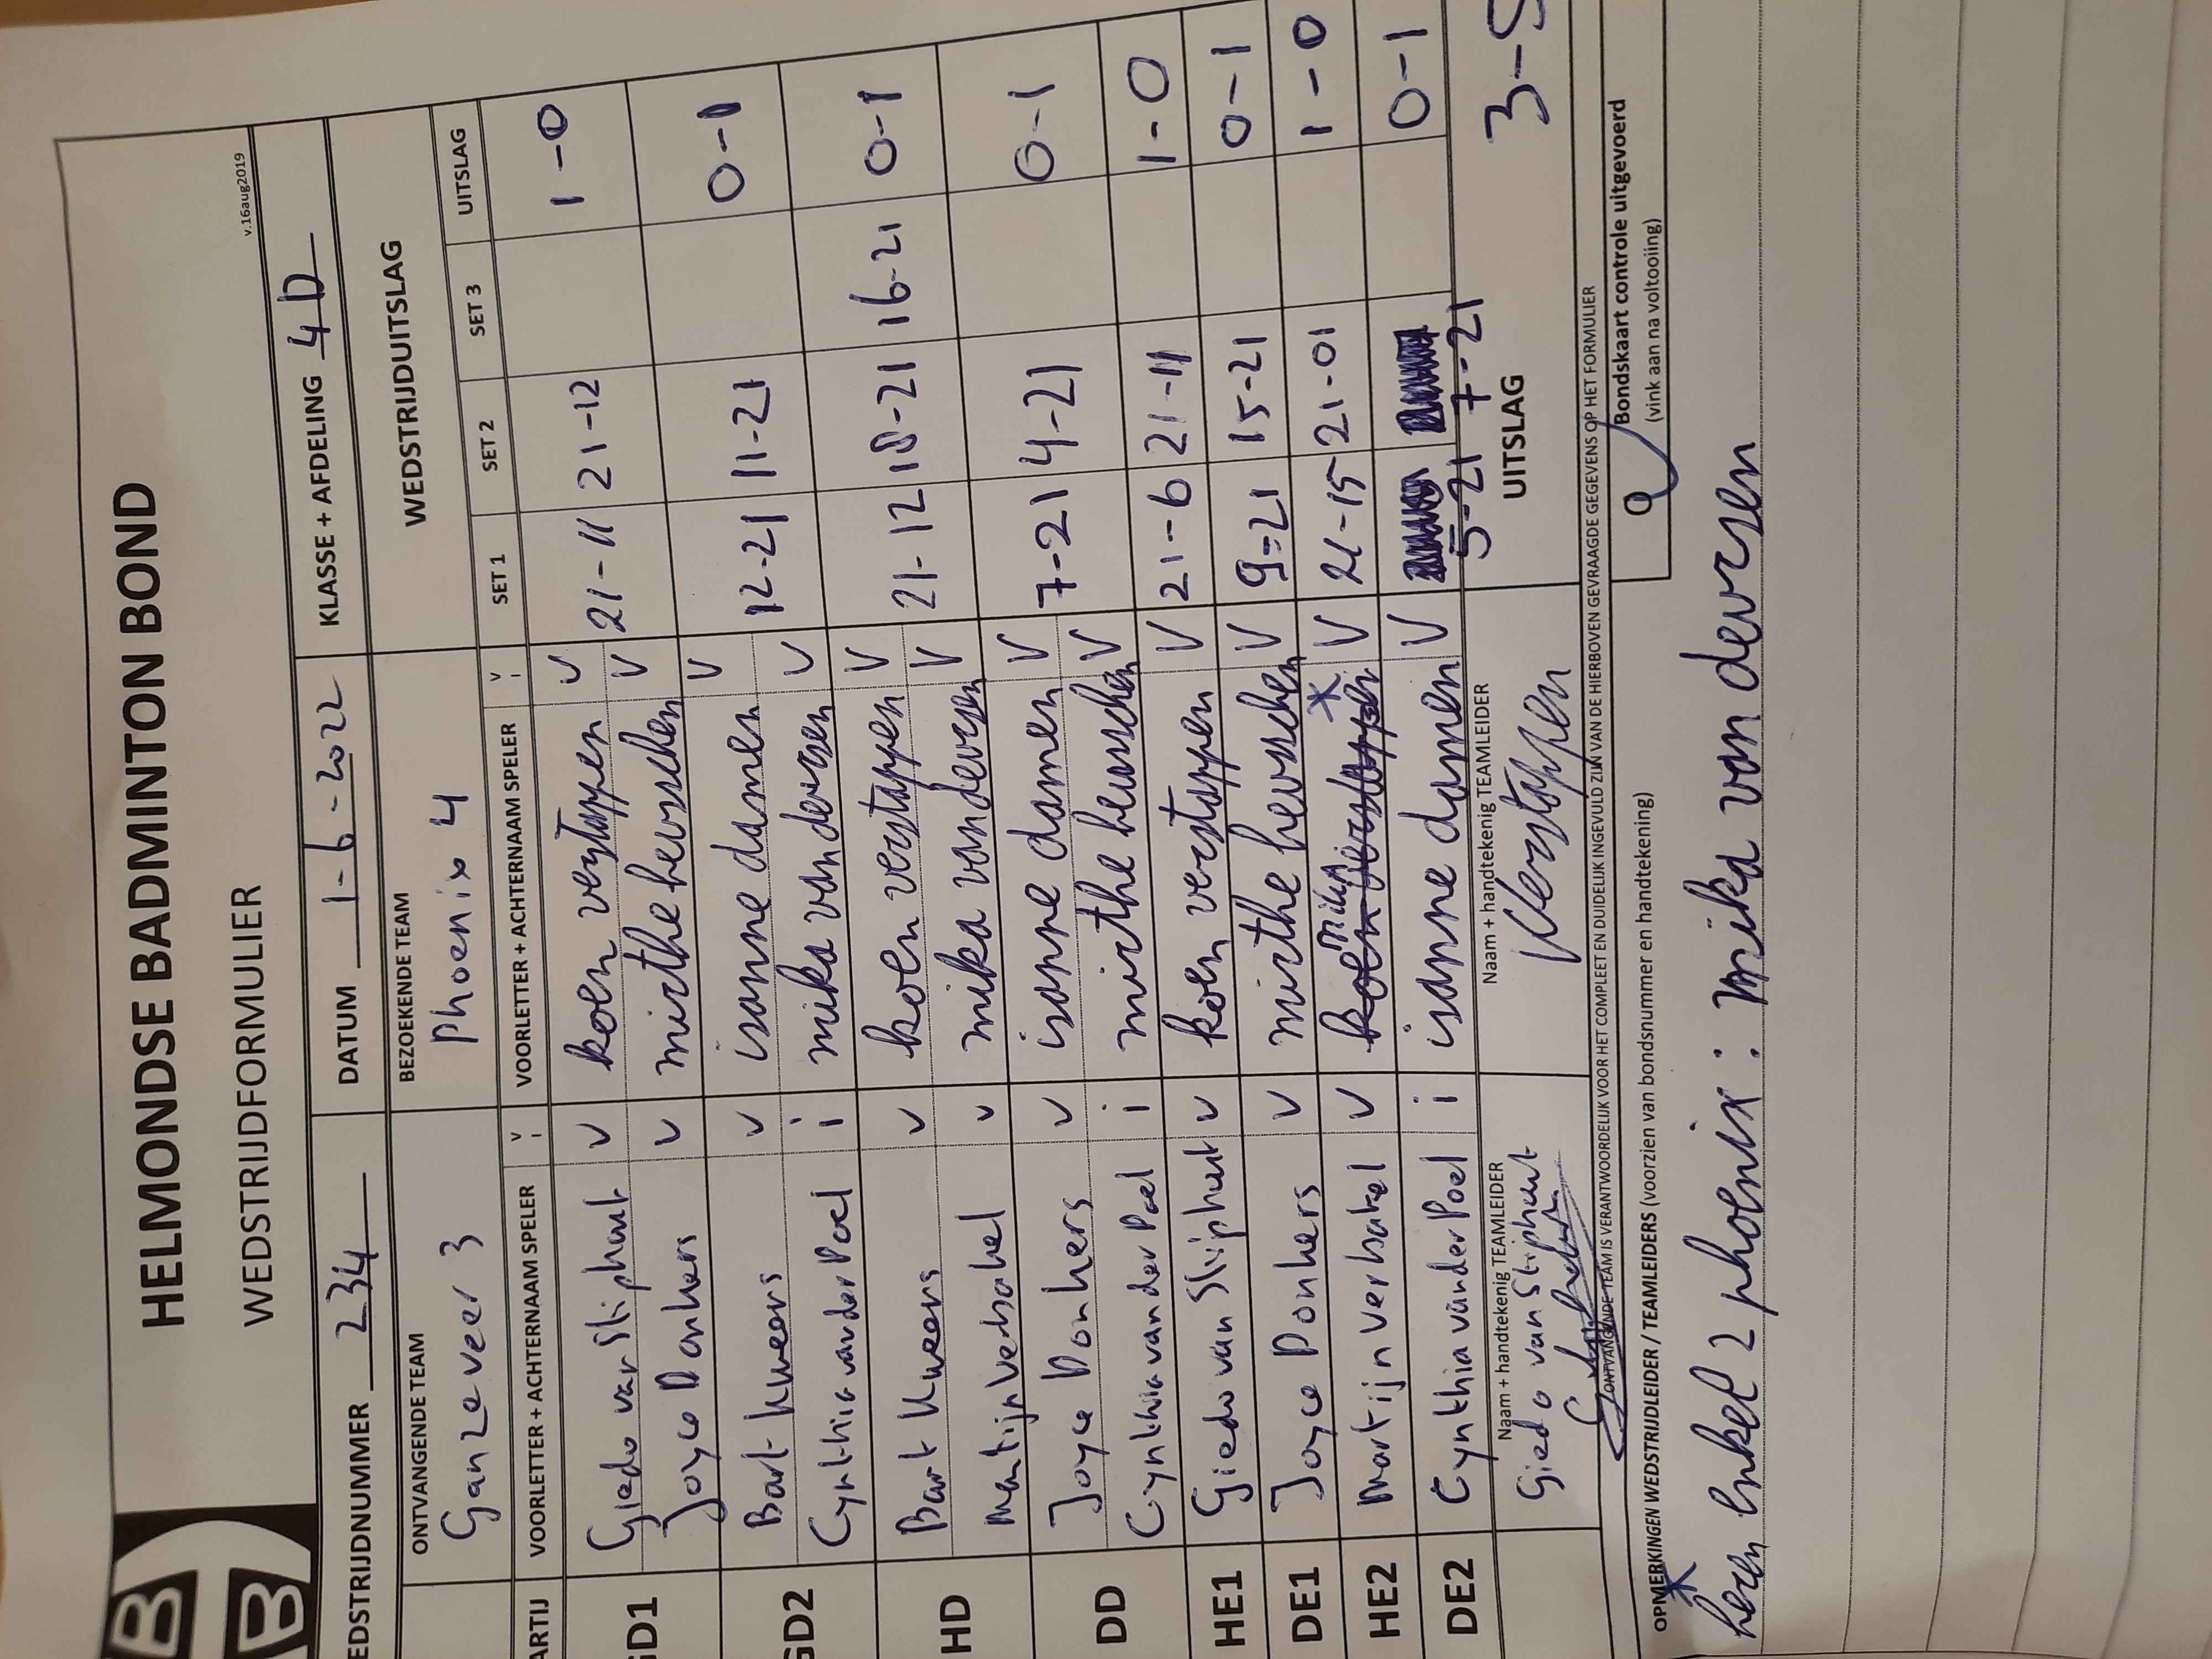 HELMONDSE BADMINTON BOND
WEDSTRIJDFORMULIER
v.16aug2019
EDSTRIJDNUMMER 234 DATUM 1-6-2022 KLASSE + AFDELING 4D
ONTVANGENDE TEAM BEZOEKENDE TEAM WEDSTRIJDUITSLAG
Ganzeveer 3 Phoenix 4
ARTIJ VOORLETTER + ACHTERNAAM SPELER V I VOORLETTER + ACHTERNAAM SPELER V I SET 1 SET 2 SET 3 UITSLAG
GD1 Giedo van Sliphout v koen verstappen v 21-11 21-12 1-0
Joyce Donkers v mirthe heusschen v
GD2 Bart Kweens v isanne damen v 12-21 11-21 0-1
Cynthia van der Poel i mika van deursen v
HD Bart Kweens v koen verstappen v 21-12 18-21 16-21 0-1
Martijn Verbakel v mika van deursen v
DD Joyce Donkers v isanne damen v 7-21 4-21 0-1
Cynthia van der Poel i mirthe heusschen v
HE1 Giedo van Sliphout v koen verstappen v 21-6 21-11 1-0
DE1 Joyce Donkers v mirthe heusschen v 9-21 15-21 0-1
HE2 Martijn Verbakel v koen verstappen * v 21-15 21-01 1-0
DE2 Cynthia van der Poel i isanne damen v 5-21 7-21 0-1
Naam + handtekenig TEAMLEIDER Naam + handtekenig TEAMLEIDER UITSLAG 3-5
Giedo van Sliphout Verstappen
ONTVANGENDE TEAM IS VERANTWOORDELIJK VOOR HET COMPLEET EN DUIDELIJK INGEVULD ZIJN VAN DE HIERBOVEN GEVRAAGDE GEGEVENS OP HET FORMULIER
Bondskaart controle uitgevoerd
(vink aan na voltooiing)
OPMERKINGEN WEDSTRIJDLEIDER / TEAMLEIDERS (voorzien van bondsnummer en handtekening)
* heren enkel 2 phoenix : mika van deursen